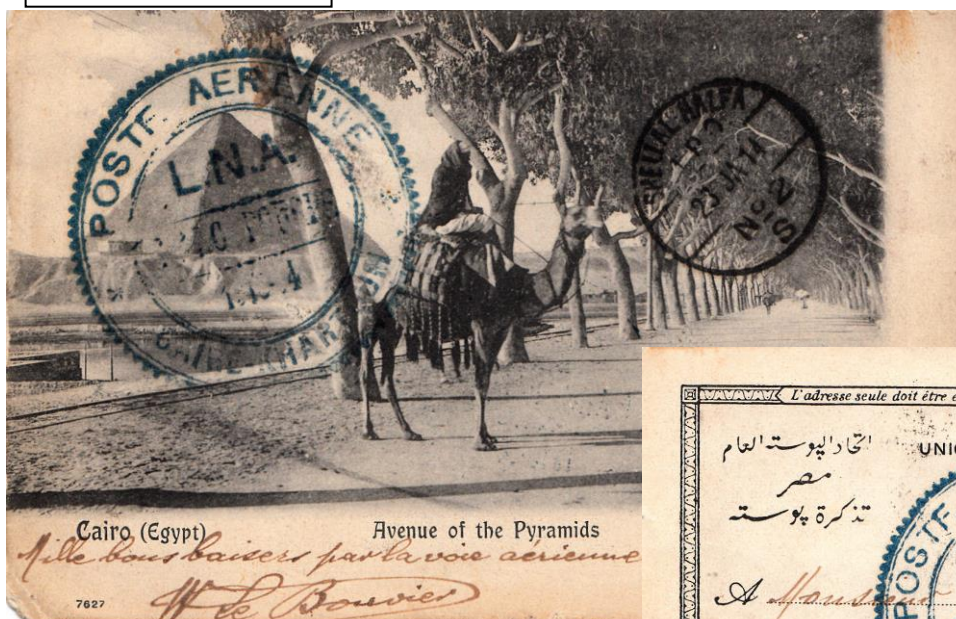 POSTE AERIENNE
L.N.A.
SHELLAL HALFA
23 JA 14
No 2
Cairo (Egypt)
Avenue of the Pyramids
Mille bons baisers par la voie aérienne
Le Bouvier
7627
L'adresse seule doit être
اتحاد البوسته العام
مصر
تذكرة بوسته
POSTE
A Monsieur